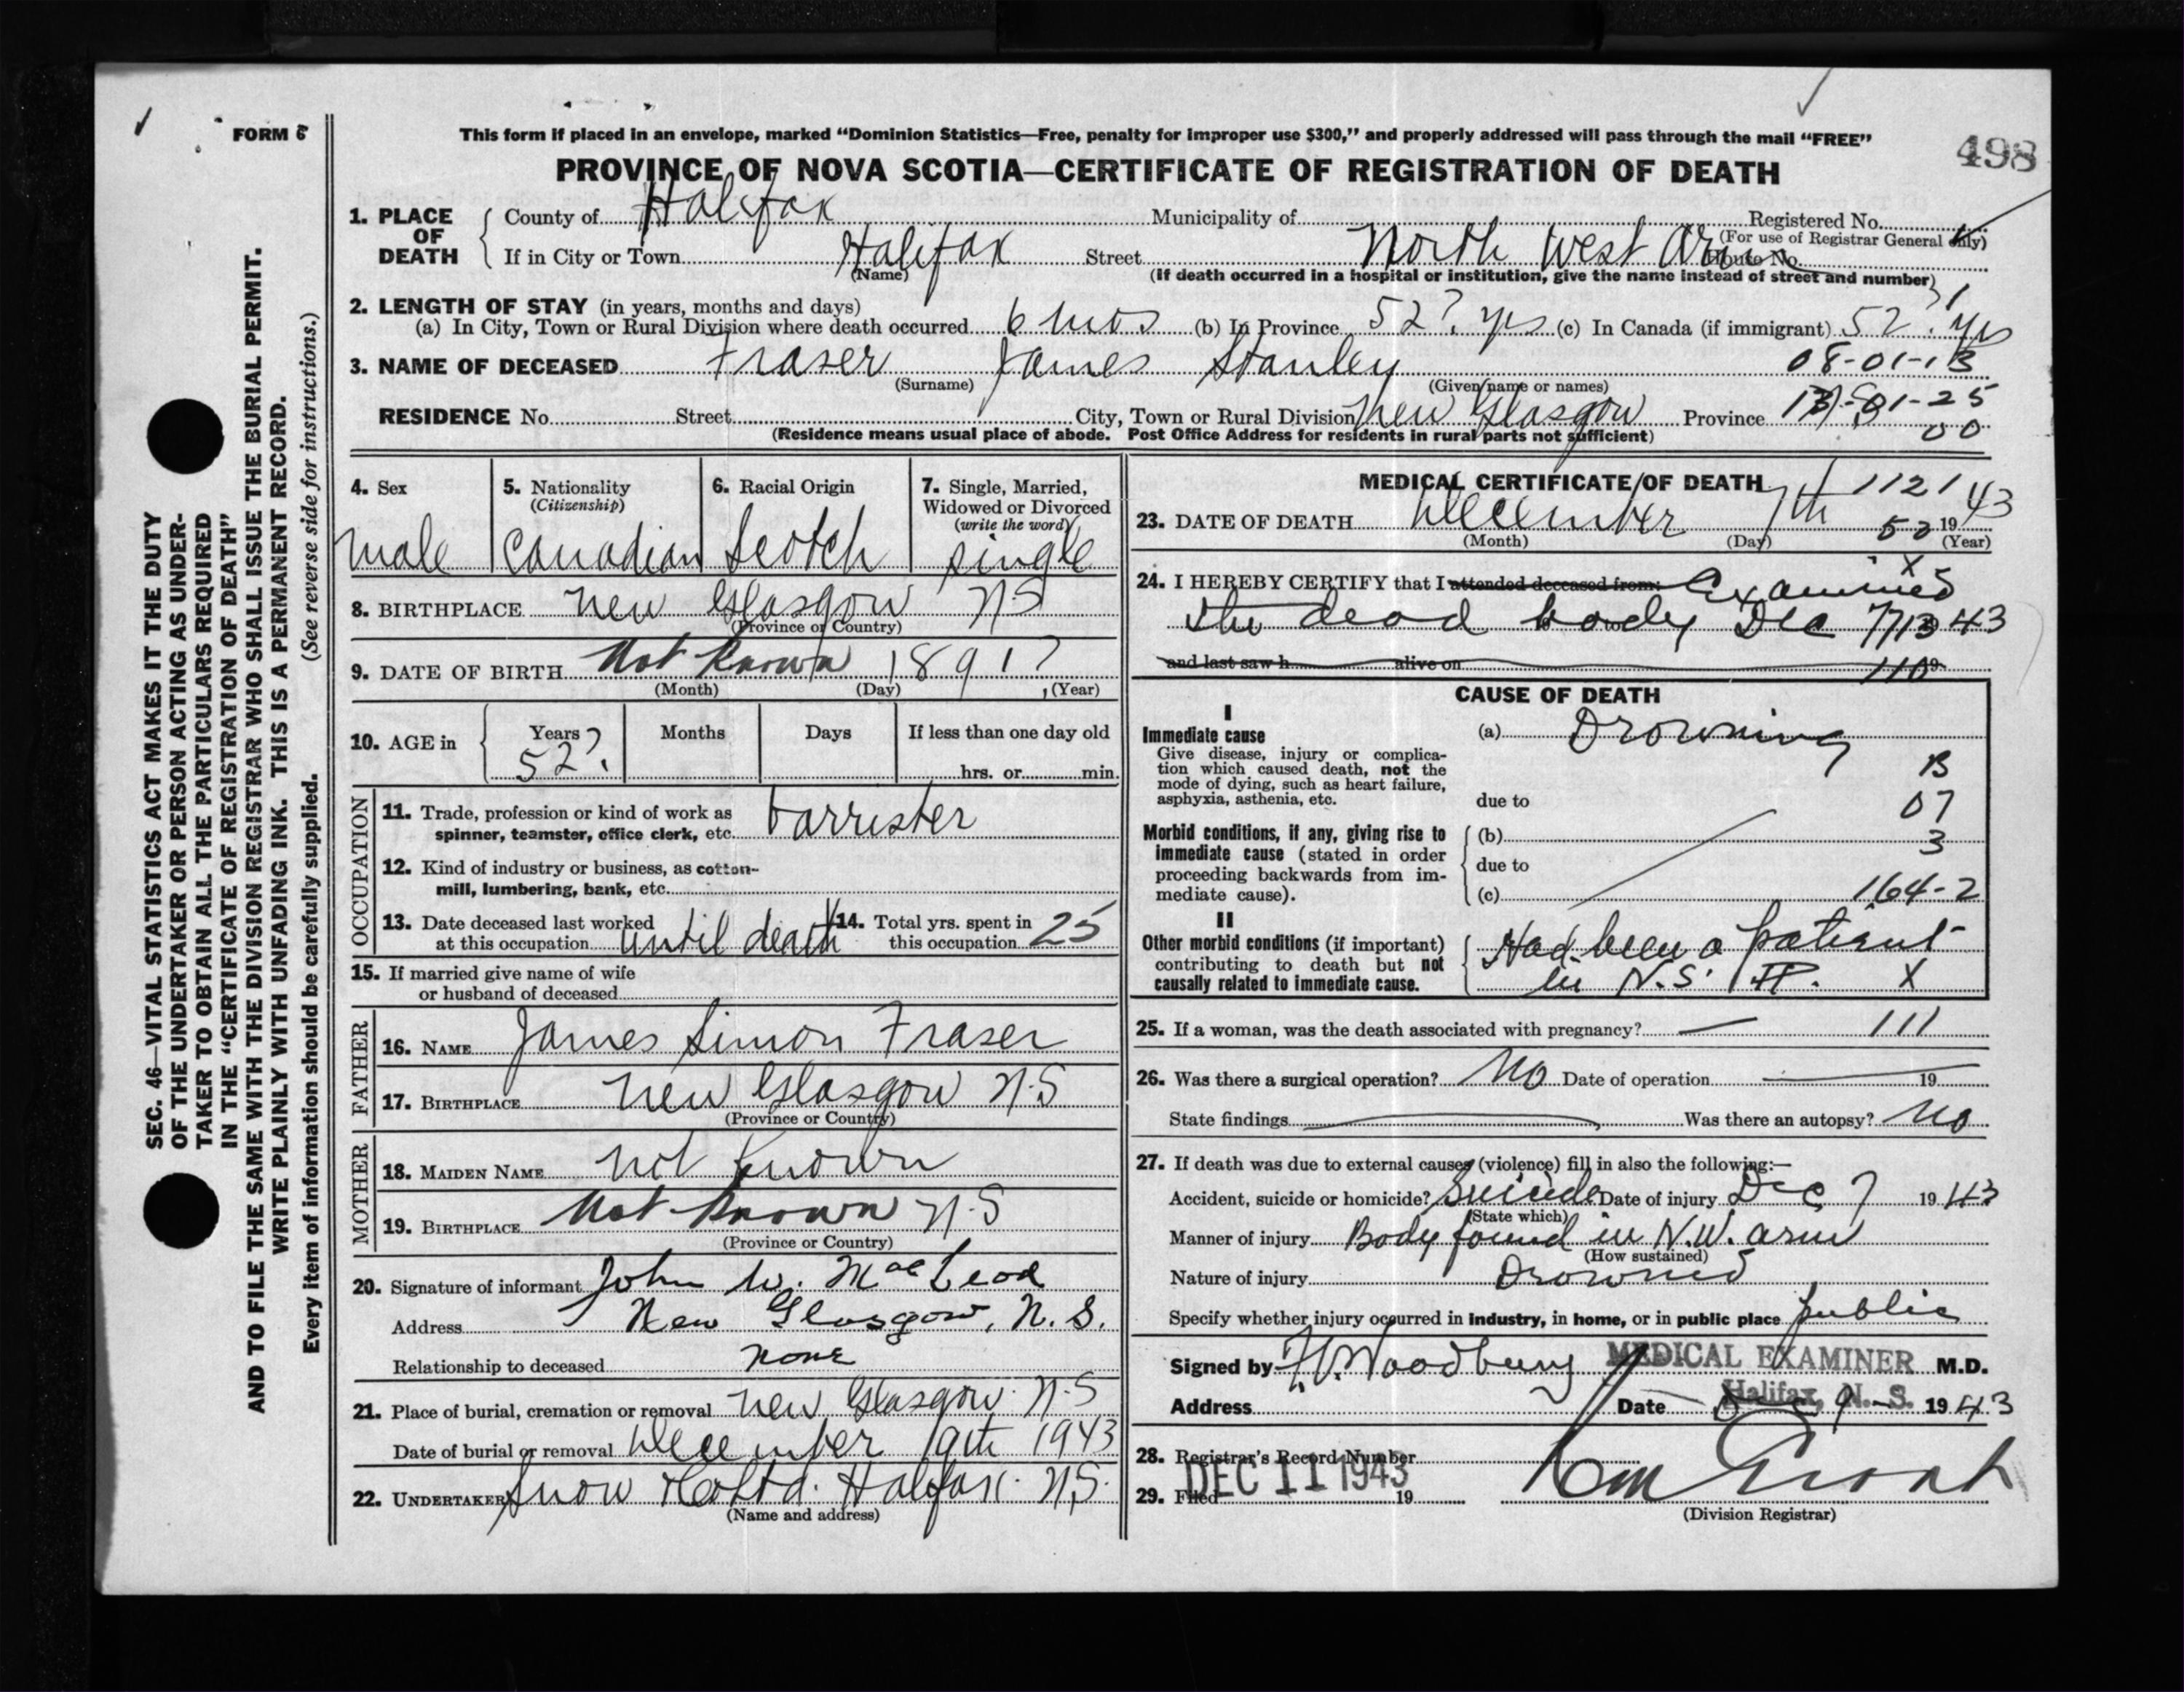 FORM 6
This form if placed in an envelope, marked "Dominion Statistics—Free, penalty for improper use $300," and properly addressed will pass through the mail "FREE"
PROVINCE OF NOVA SCOTIA—CERTIFICATE OF REGISTRATION OF DEATH
498
1. PLACE OF DEATH
County of Halifax Municipality of Registered No.
(For use of Registrar General only)
If in City or Town Halifax Street North West Arm Route No.
(Name)
(If death occurred in a hospital or institution, give the name instead of street and number)
2. LENGTH OF STAY (in years, months and days)
(a) In City, Town or Rural Division where death occurred 6 mos (b) In Province 52? yrs (c) In Canada (if immigrant) 52? yrs
3. NAME OF DECEASED Fraser James Stanley 08-01-13
(Surname) (Given name or names)
RESIDENCE No. Street City, Town or Rural Division New Glasgow Province
(Residence means usual place of abode. Post Office Address for residents in rural parts not sufficient)
00
4. Sex
male
5. Nationality
(Citizenship)
Canadian
6. Racial Origin
Scotch
7. Single, Married,
Widowed or Divorced
(write the word)
single
8. BIRTHPLACE New Glasgow NS
(Province or Country)
9. DATE OF BIRTH Not Known 1891?
(Month) (Day) , (Year)
10. AGE in Years 52? Months Days If less than one day old
hrs. or min.
OCCUPATION
11. Trade, profession or kind of work as
spinner, teamster, office clerk, etc. barrister
12. Kind of industry or business, as cotton-
mill, lumbering, bank, etc.
13. Date deceased last worked
at this occupation until death
14. Total yrs. spent in
this occupation 25
15. If married give name of wife
or husband of deceased
FATHER
16. NAME James Simon Fraser
17. BIRTHPLACE New Glasgow N.S
(Province or Country)
MOTHER
18. MAIDEN NAME not known
19. BIRTHPLACE Not Known N.S
(Province or Country)
20. Signature of informant John W. MacLeod
Address New Glasgow, N.S.
Relationship to deceased none
21. Place of burial, cremation or removal New Glasgow N.S
Date of burial or removal December 9th 1943
22. UNDERTAKER Snow & Co Ltd. Halifax N.S.
(Name and address)
MEDICAL CERTIFICATE OF DEATH
1121
23. DATE OF DEATH December 7th 1943
(Month) (Day) (Year)
24. I HEREBY CERTIFY that I attended deceased from: Examined
the dead body Dec 7 1943
and last saw h alive on 19
CAUSE OF DEATH
I
Immediate cause
Give disease, injury or complica-
tion which caused death, not the
mode of dying, such as heart failure,
asphyxia, asthenia, etc.
(a) Drowning
B
due to 07
Morbid conditions, if any, giving rise to
immediate cause (stated in order
proceeding backwards from im-
mediate cause).
(b) 3
due to
(c) 164-2
II
Other morbid conditions (if important)
contributing to death but not
causally related to immediate cause.
Had been a patient
in N.S. H. X
25. If a woman, was the death associated with pregnancy? — 111
26. Was there a surgical operation? No Date of operation 19
State findings Was there an autopsy? No
27. If death was due to external causes (violence) fill in also the following:—
Accident, suicide or homicide? Suicide Date of injury Dec 7 1943
(State which)
Manner of injury Body found in N.W. arm
(How sustained)
Nature of injury Drowned
Specify whether injury occurred in industry, in home, or in public place public
Signed by Woodbury MEDICAL EXAMINER M.D.
Address Halifax, N. S. Date Dec 9 1943
28. Registrar's Record Number
DEC 11 1943
29. Filed 19
(Division Registrar)
SEC. 46—VITAL STATISTICS ACT MAKES IT THE DUTY
OF THE UNDERTAKER OR PERSON ACTING AS UNDER-
TAKER TO OBTAIN ALL THE PARTICULARS REQUIRED
IN THE "CERTIFICATE OF REGISTRATION OF DEATH"
AND TO FILE THE SAME WITH THE DIVISION REGISTRAR WHO SHALL ISSUE THE BURIAL PERMIT.
WRITE PLAINLY WITH UNFADING INK. THIS IS A PERMANENT RECORD.
Every item of information should be carefully supplied. (See reverse side for instructions.)